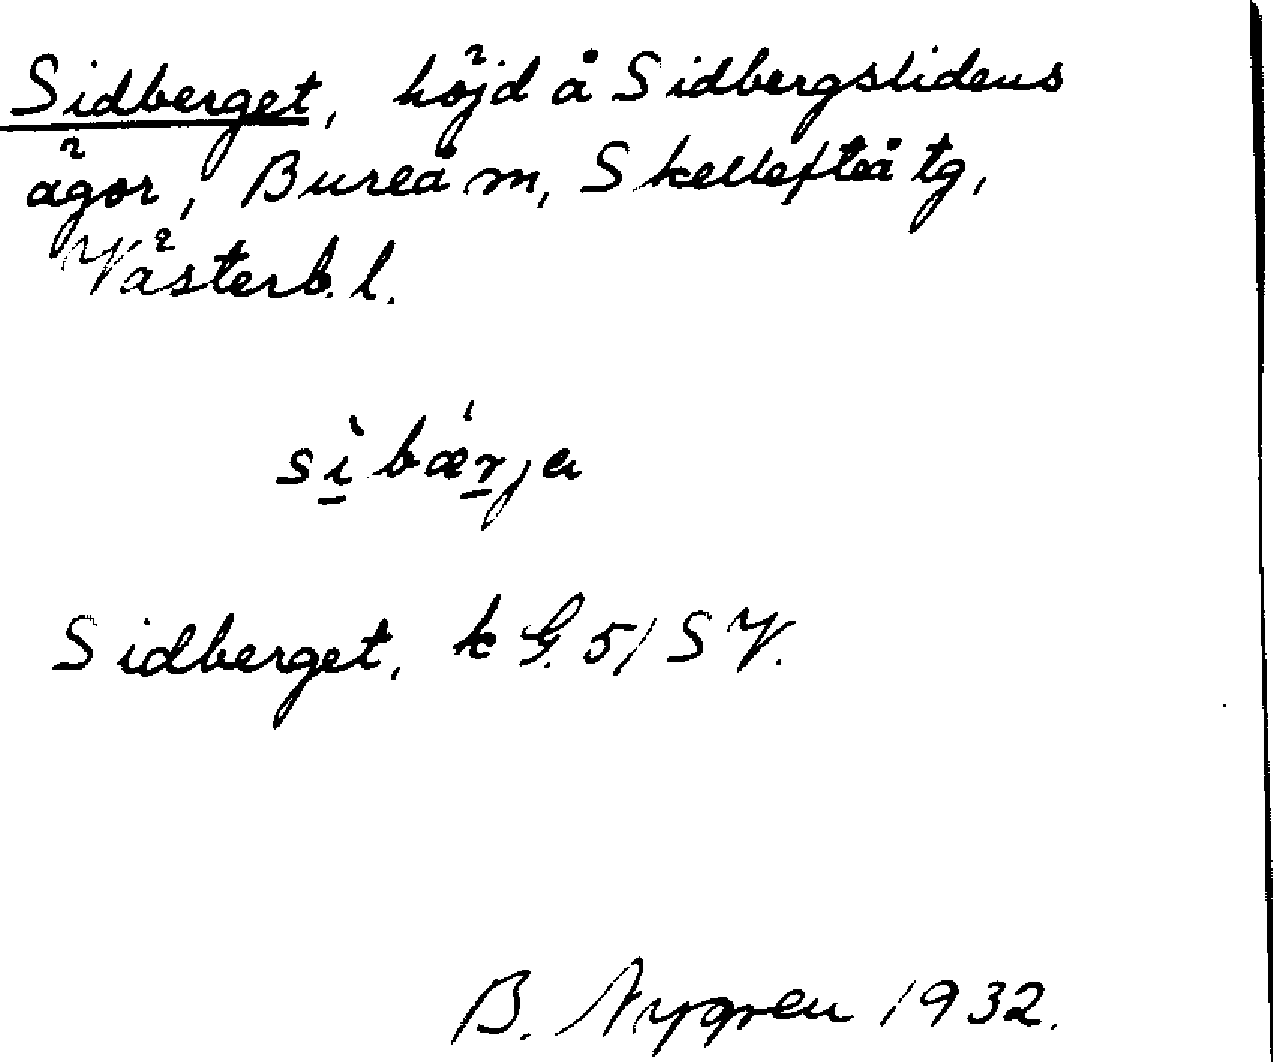 Sidberget, höjd å Sidbergslidens
ägor, Bureå m, Skellefteå tg,
Västerb. l.
sì bǽrja
Sidberget, k G. 51 SV.
B. Nygren 1932.